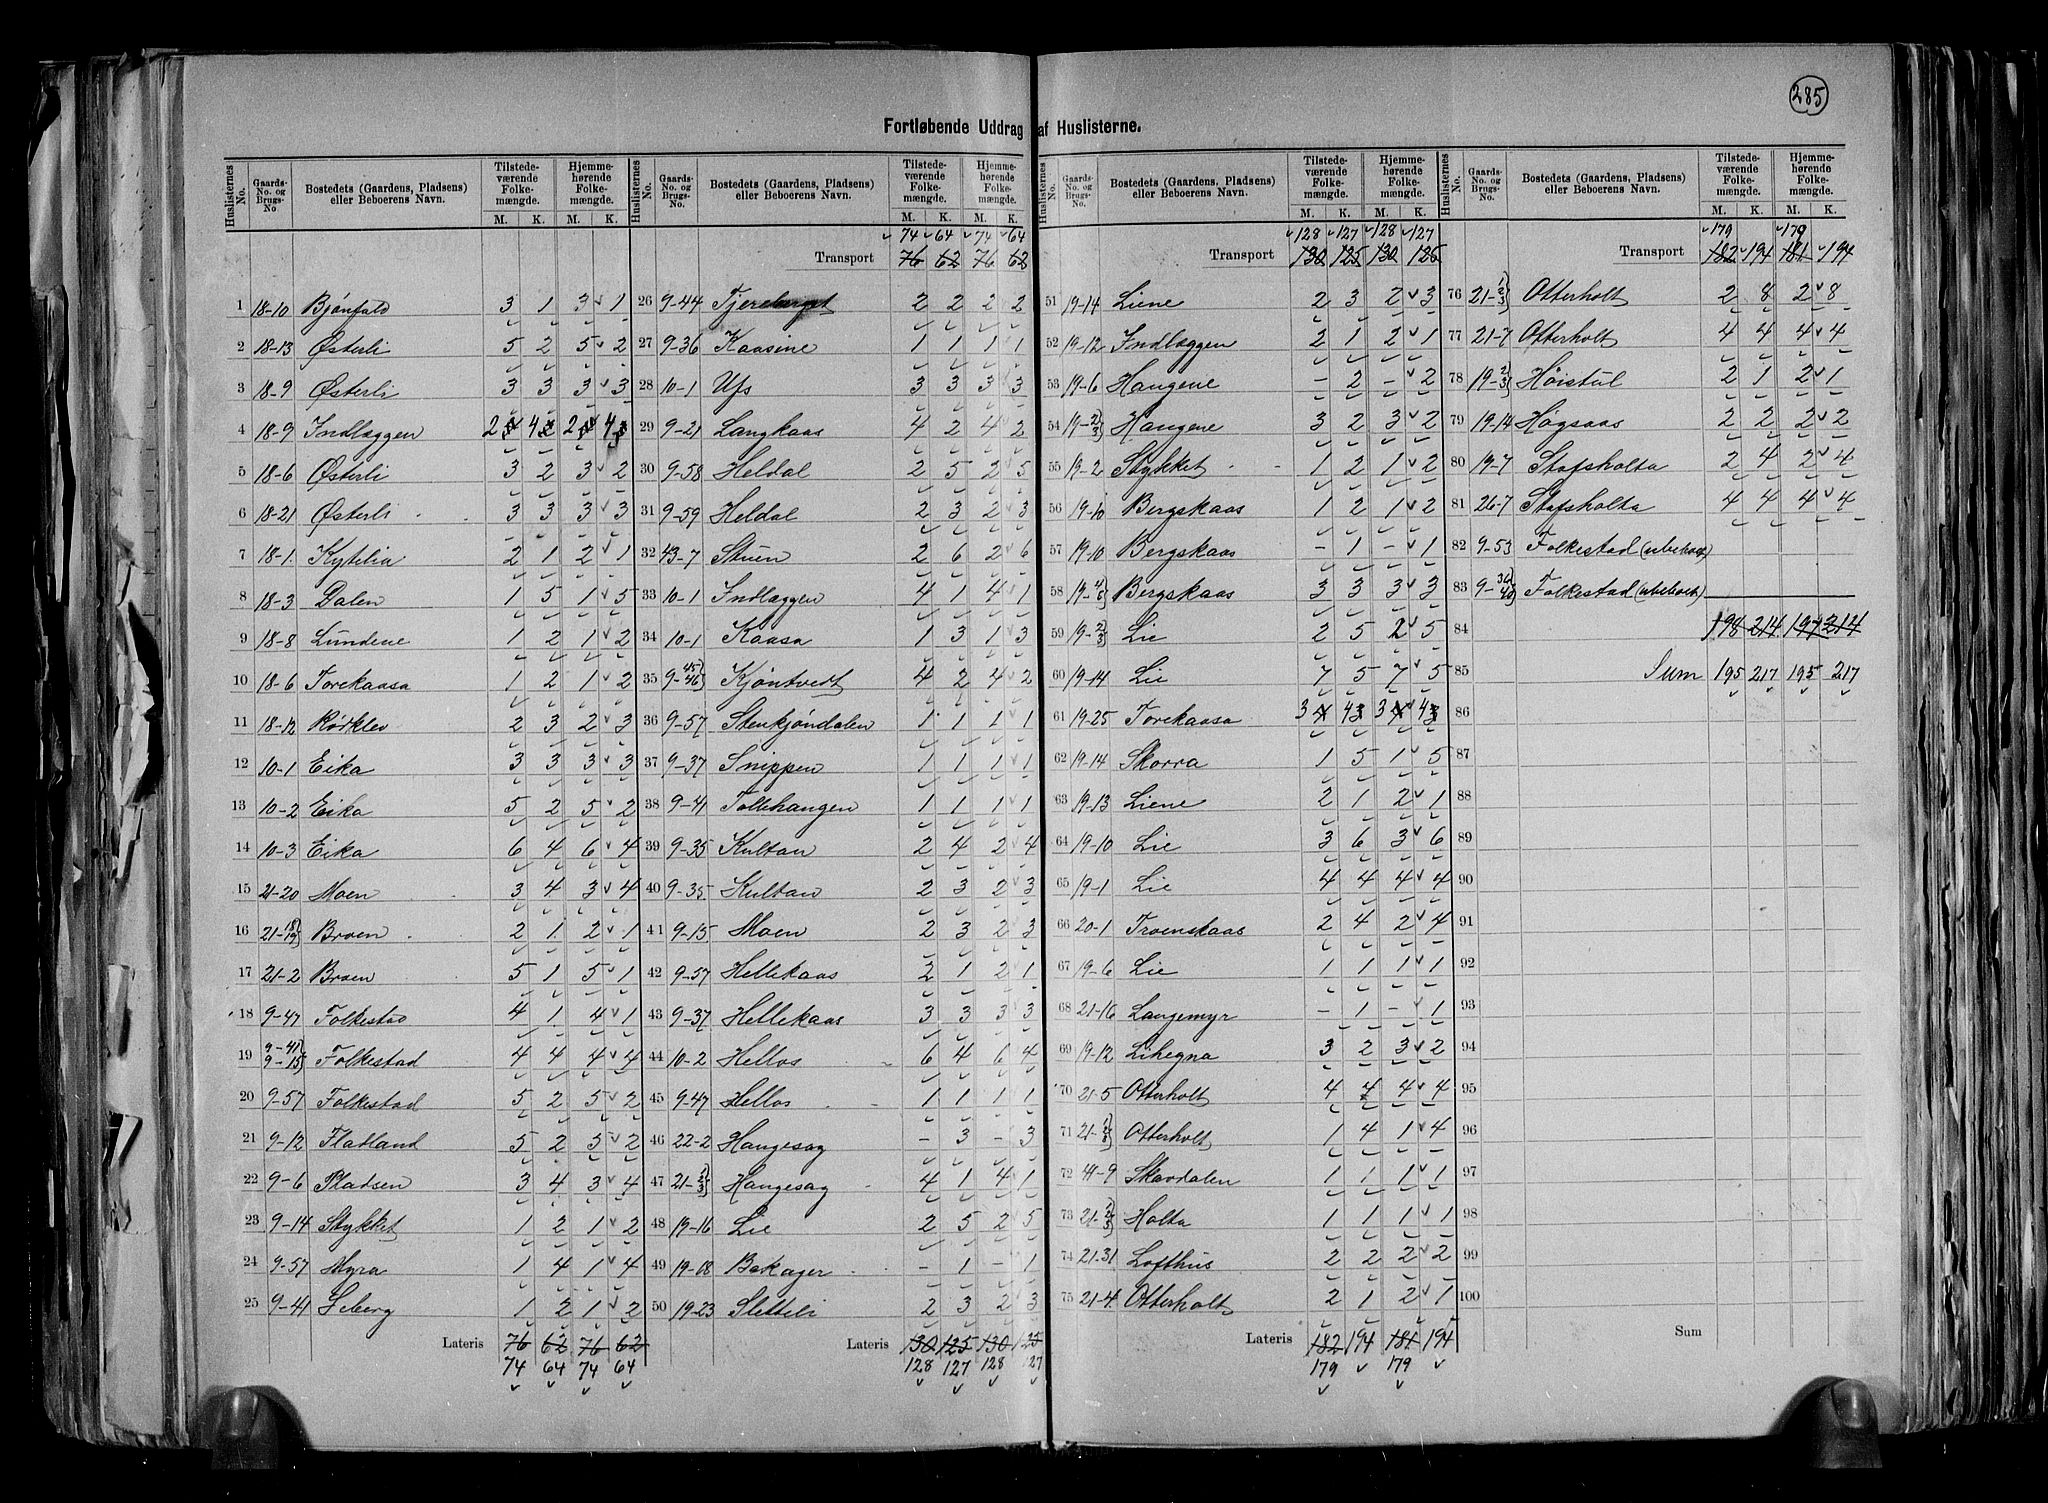 285
Fortløbende Uddrag af Huslisterne.
Huslisternes No. Gaards-No. og Brugs-No Bostedets (Gaardens, Pladsens) eller Beboerens Navn. Tilstedeværende Folkemængde. M. K. Hjemmehørende Folkemængde. M. K.
1 18-10 Bjónfald 3 1 3 1
2 18-13 Østerli 5 2 5 2
3 18-9 Østerli 3 3 3 3
4 18-9 Indlæggen 2 4 2 4
5 18-6 Østerli 3 2 3 2
6 18-21 Østerli 3 3 3 3
7 18-1 Kytilia 2 1 2 1
8 18-3 Dalen 1 5 1 5
9 18-8 Lundene 1 2 1 2
10 18-6 Torekaasa 1 2 1 2
11 18-12 Rørklev 2 3 2 3
12 10-1 Eika 3 3 3 3
13 10-2 Eika 5 2 5 2
14 10-3 Eika 6 4 6 4
15 21-20 Moen 3 4 3 4
16 21-18 19 Broen 2 1 2 1
17 21-2 Broen 5 1 5 1
18 9-47 Folkestad 4 1 4 1
19 9-41 9-15 Folkestad 4 4 4 4
20 9-57 Folkestad 5 2 5 2
21 9-12 Fladland 5 2 5 2
22 9-6 Pladsen 3 4 3 4
23 9-14 Stykket 1 2 1 2
24 9-57 Myra 1 4 1 4
25 9-41 Seberg 1 2 1 2
Lateris 76 62 76 62
74 64 74 64
Huslisternes No. Gaards-No. og Brugs-No. Bostedets (Gaardens, Pladsens) eller Beboerens Navn. Tilstedeværende Folkemængde. M. K. Hjemmehørende Folkemængde. M. K.
74 64 74 64
Transport 76 62 76 62
26 9-44 2 2 2 2
27 9-36 Kaasine 1 1 1 1
28 10-1 Ufs 3 3 3 3
29 9-21 Langkaas 4 2 4 2
30 9-58 Heldal 2 5 2 5
31 9-59 Heldal 2 3 2 3
32 43-7 Stuen 2 6 2 6
33 10-1 Indlæggen 4 1 4 1
34 10-1 Kaasa 1 3 1 3
35 9-45 46 Kjøntvedt 4 2 4 2
36 9-57 Stenkjøndalen 1 1 1 1
37 9-37 Snippen 1 1 1 1
38 9-41 Tollehaugen 1 1 1 1
39 9-35 Kultan 2 4 2 4
40 9-35 Kultan 2 3 2 3
41 9-15 Moen 2 3 2 3
42 9-57 Hellekaas 2 1 2 1
43 9-37 Hellekaas 3 3 3 3
44 10-2 Hellos 6 4 6 4
45 9-47 Hellos 1 1 1 1
46 22-2 Haugesag - 3 - 3
47 21-1 2 3 Haugesag 4 1 4 1
48 19-16 Lie 2 5 2 5
49 19-18 Bakager - 1 - 1
50 19-23 Slettili 2 3 2 3
Lateris 130 125 130 125
128 127 128 127
Huslisternes No. Gaards-No. og Brugs-No. Bostedets (Gaardens, Pladsens) eller Beboerens Navn. Tilstedeværende Folkemængde. M. K. Hjemmehørende Folkemængde. M. K.
128 127 128 127
Transport 130 125 130 125
51 19-14 Liene 2 3 2 3
52 19-12 Indlæggen 2 1 2 1
53 19-6 Haugene - 2 - 2
54 19-2 3 Haugene 3 2 3 2
55 19-2 Stykket 1 2 1 2
56 19-10 Bergskaas 1 2 1 2
57 19-10 Bergskaas - 1 - 1
58 19-4 8 Bergskaas 3 3 3 3
59 19-2 3 Lie 2 5 2 5
60 19-14 Lie 7 5 7 5
61 19-25 Torekaasa 3 4 3 4
62 19-14 Skorra 1 5 1 5
63 19-13 Liene 2 1 2 1
64 19-10 Lie 3 6 3 6
65 19-1 Lie 4 4 4 4
66 20-1 Troenskaas 2 4 2 4
67 19-6 Lie 1 1 1 1
68 21-16 Langemyr - 1 - 1
69 19-12 Lihegna 3 2 3 2
70 21-5 Otterholt 4 4 4 4
71 21- Otterholt 1 4 1 4
72 41-9 Skardalen 1 1 1 1
73 21-1 2 3 Holta 1 1 1 1
74 21-31 Lofthus 2 2 2 2
75 21-4 Otterholt 2 1 2 1
Lateris 182 194 181 194
179 179
Huslisternes No. Gaards-No. og Brugs-No. Bostedets (Gaardens, Pladsens) eller Beboerens Navn. Tilstedeværende Folkemængde. M. K. Hjemmehørende Folkemængde. M. K.
179 179
Transport 182 194 181 194
76 21-1 2 3 Otterholt 2 8 2 8
77 21-7 Otterholt 4 4 4 4
78 19-2 3 Høistul 2 1 2 1
79 19-14 Høgsaas 2 2 2 2
80 19-7 Stafsholta 2 4 2 4
81 26-7 Stafsholta 4 4 4 4
82 9-53 Folkestad (ubeboet)
83 9-36 40 Folkestad (ubeboet)
84 198 214 197 214
85 Sum 195 217 195 217
86
87
88
89
90
91
92
93
94
95
96
97
98
99
100
Sum